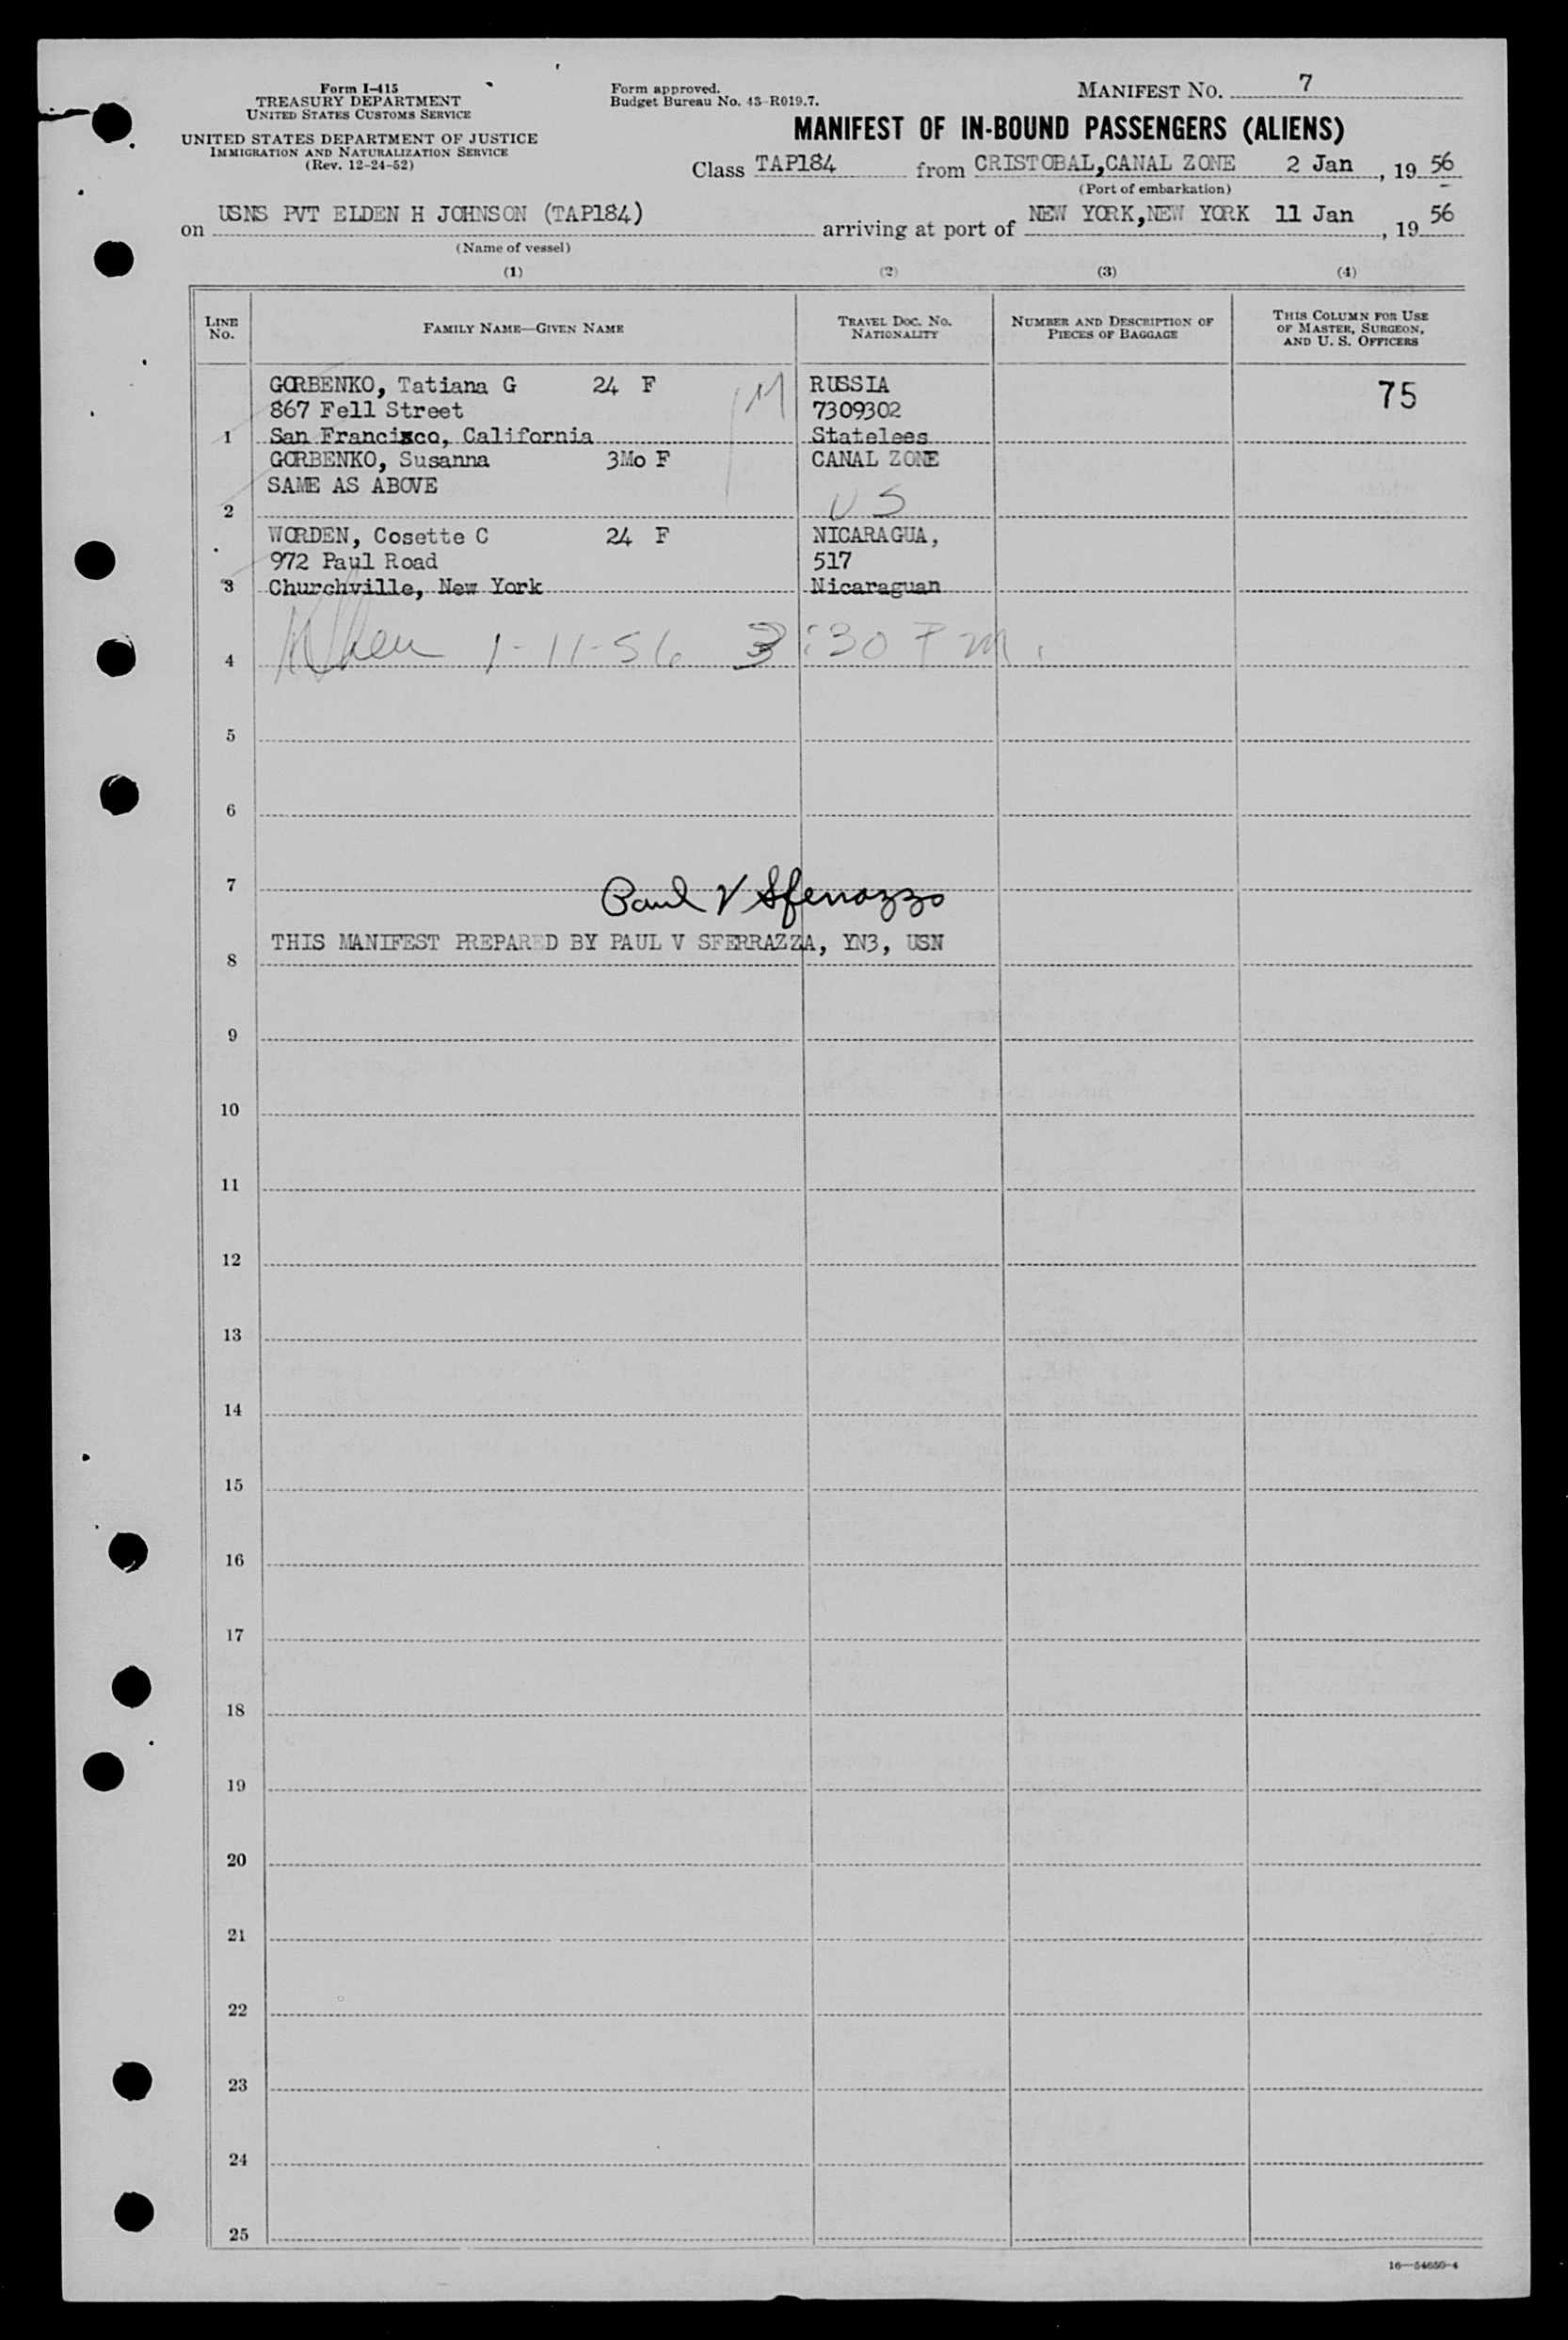 Form I-415
TREASURY DEPARTMENT
UNITED STATES CUSTOMS SERVICE
UNITED STATES DEPARTMENT OF JUSTICE
IMMIGRATION AND NATURALIZATION SERVICE
(Rev. 12-24-52)
Form approved.
Budget Bureau No. 43-R019.7.
MANIFEST NO. 7
MANIFEST OF IN-BOUND PASSENGERS (ALIENS)
Class TAP184 from CRISTOBAL,CANAL ZONE 2 Jan, 19 56
(Port of embarkation)
on USNS PVT ELDEN H JOHNSON (TAP184) arriving at port of NEW YORK,NEW YORK 11 Jan, 19 56
(Name of vessel)
(1) (2) (3) (4)
LINE NO.
FAMILY NAME—GIVEN NAME
TRAVEL DOC. NO.
NATIONALITY
NUMBER AND DESCRIPTION OF
PIECES OF BAGGAGE
THIS COLUMN FOR USE
OF MASTER, SURGEON,
AND U. S. OFFICERS
GORBENKO, Tatiana G 24 F RUSSIA 75
867 Fell Street M 7309302
1 San Francixco, California Statelees
GORBENKO, Susanna 3Mo F CANAL ZONE
SAME AS ABOVE
2 US
WORDEN, Cosette C 24 F NICARAGUA,
972 Paul Road 517
3 Churchville, New York Nicaraguan
4 1-11-56 3:30 PM.
5
6
7
Paul V Sferrazzo
THIS MANIFEST PREPARED BY PAUL V SFERRAZZA, YN3, USN
8
9
10
11
12
13
14
15
16
17
18
19
20
21
22
23
24
25
16—54650-4